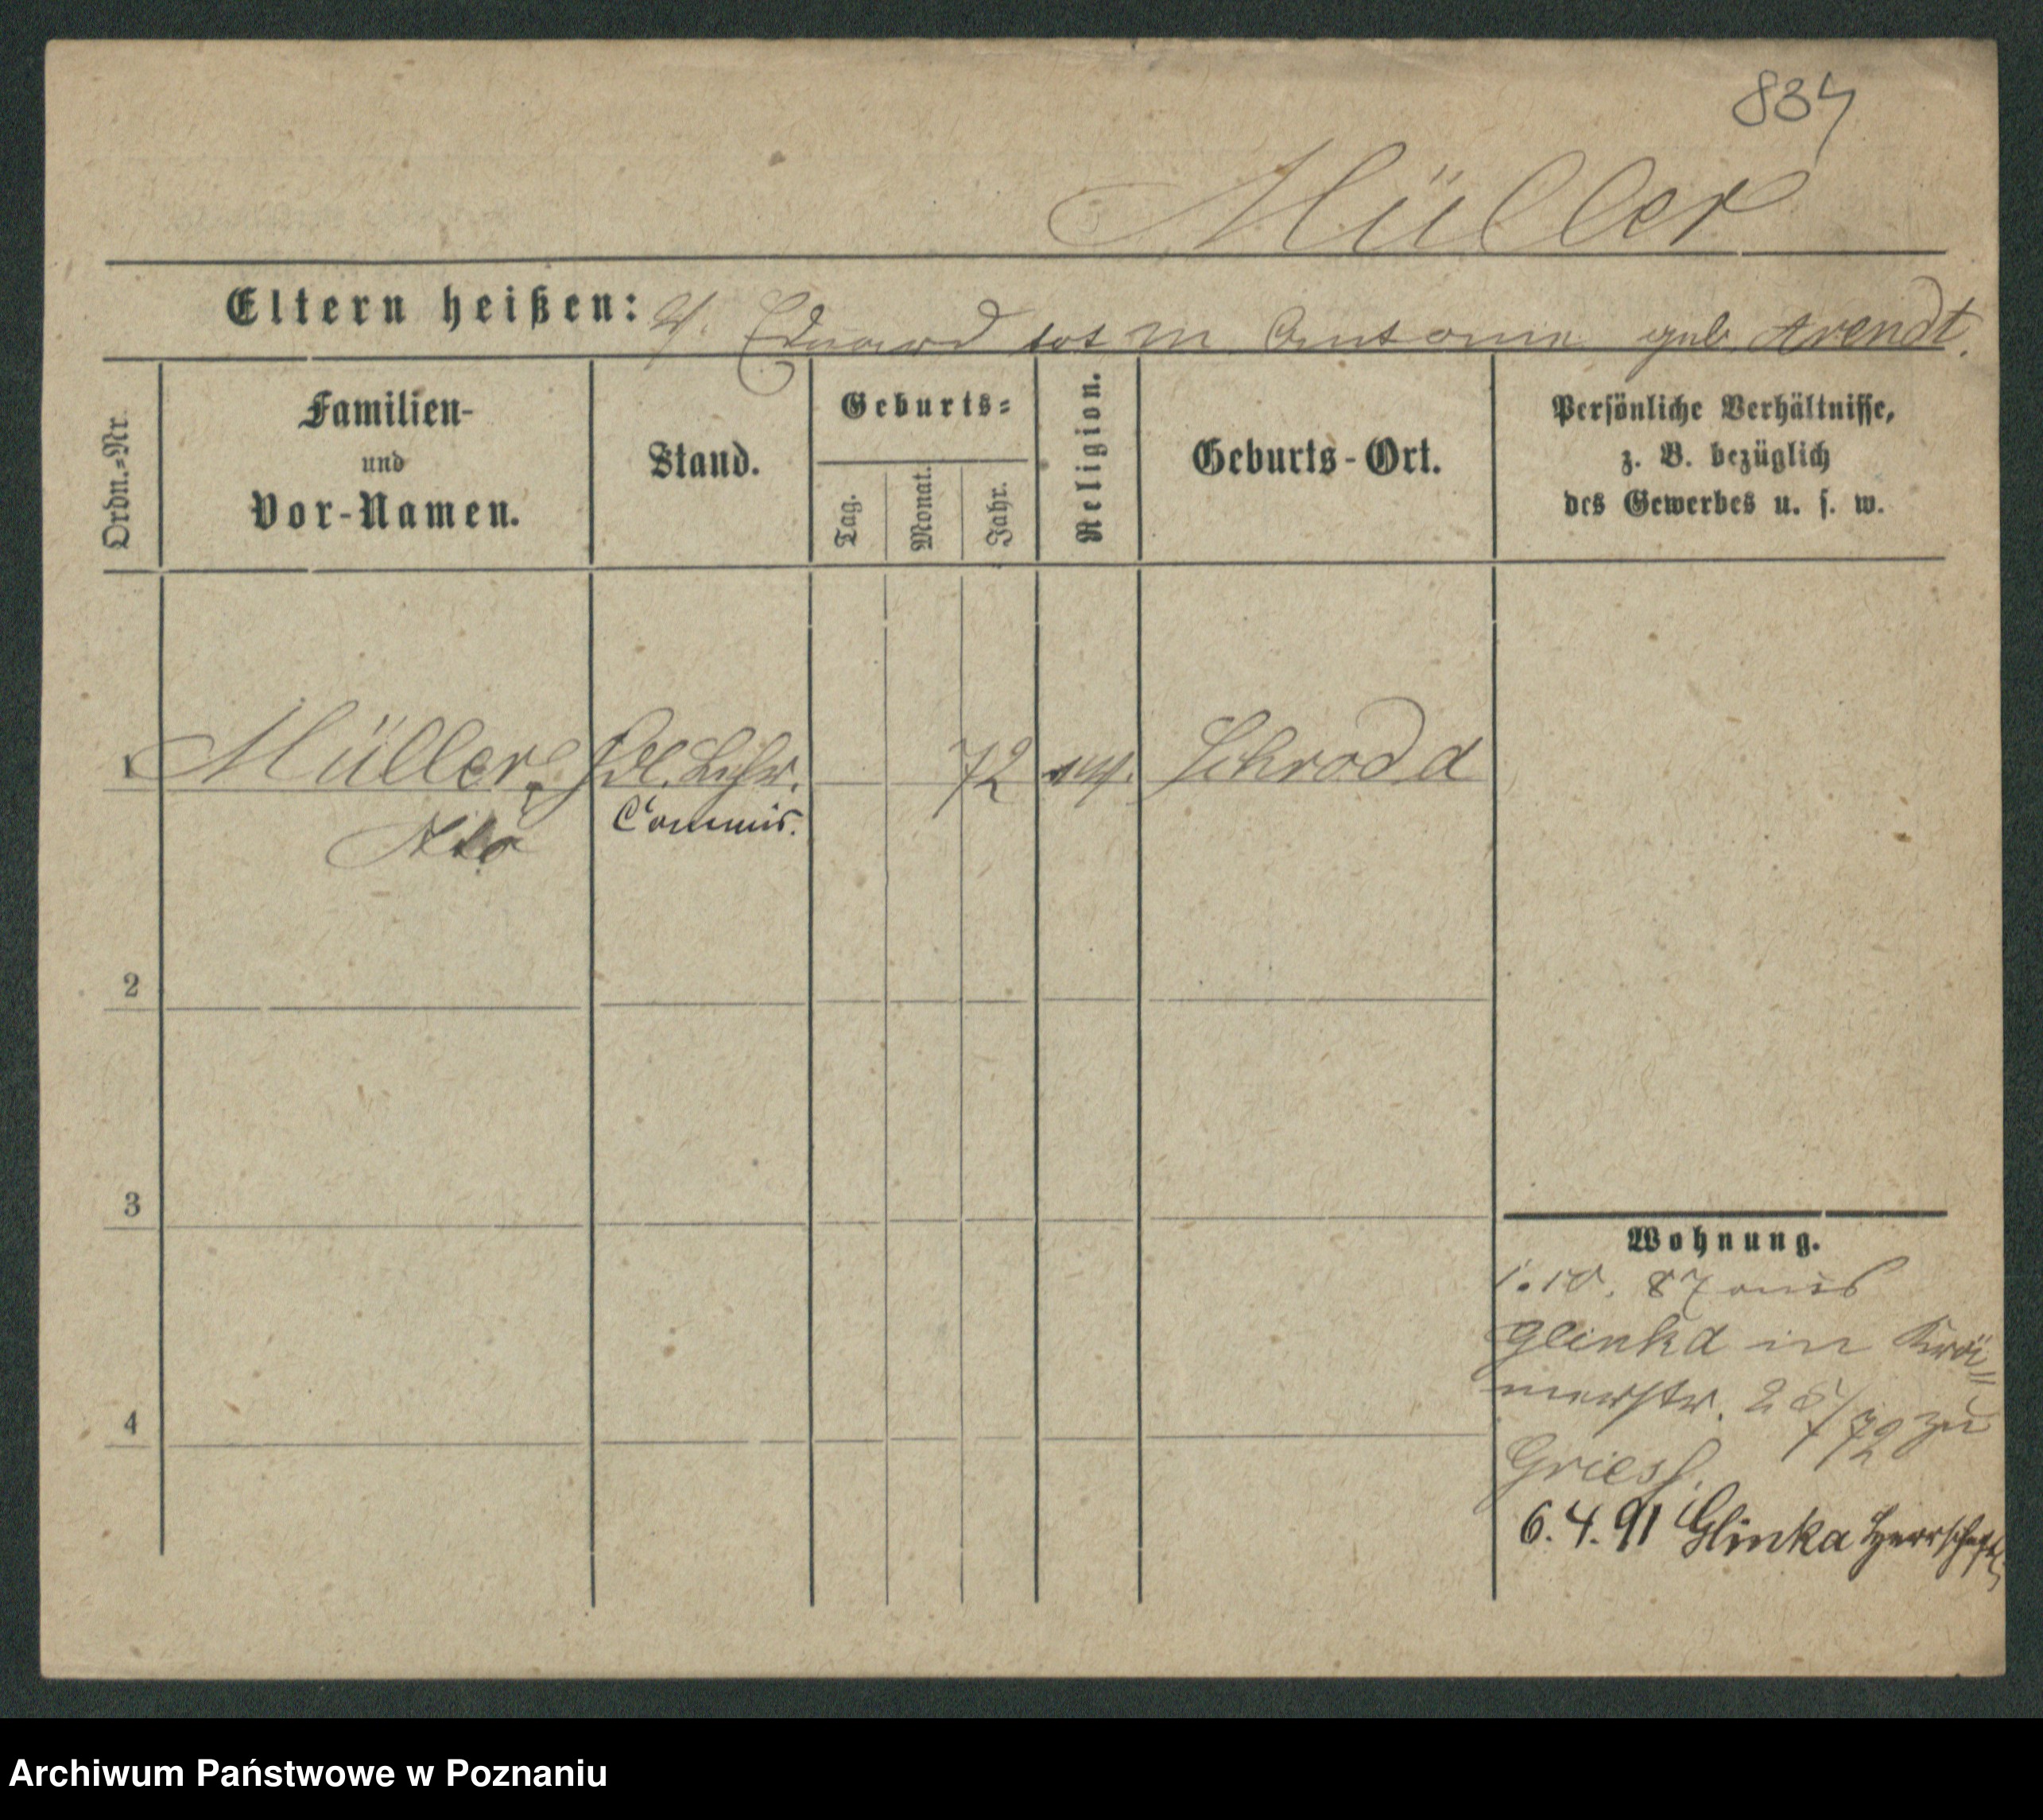 834
Müller
Eltern heißen: V. Eduard tot M. Antonie geb. Arendt.
Ordn.=Nr.
Familien-
und
Vor-Namen.
Stand.
Geburts=
Tag.
Monat.
Jahr.
Religion.
Geburts-Ort.
Persönliche Verhältnisse,
z. B. bezüglich
des Gewerbes u. s. w.
1 Müller Hdl. Lehr. 72 ev. Schroda
Commis.
2
3
4
Wohnung.
1. 10. 87 aus
Glinka in Krä=
merstr. zu
Griess.
6. 4. 91 Glinka Herrschaft
Archiwum Państwowe w Poznaniu